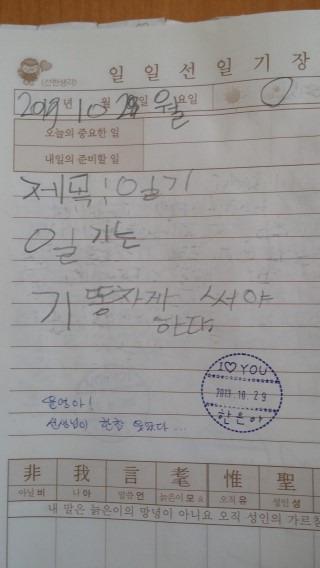 (선한생각)
일 일 선 일 기 장
2013년 10월 29일 월요일
오늘의 중요한 일
내일의 준비할 일
제목: 일기
일기는
기똥차게 써야
한다.
I♡YOU
2013.10.29
한은아
윤영아!
선생님이 한참 웃었다...
非 我 言 耄 惟 聖
아닐 비 나 아 말씀 언 늙은이 모 오직 유 성인 성
내 말은 늙은이의 망녕이 아니요 오직 성인의 가르침